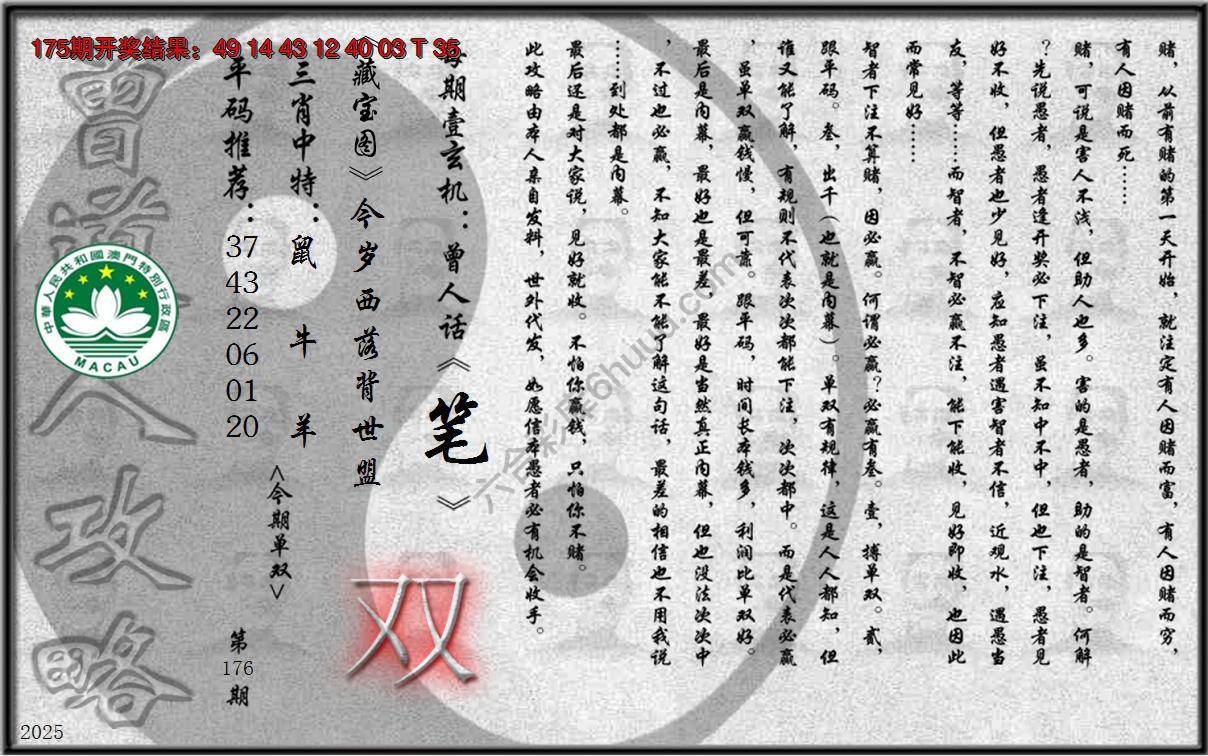 175期开奖结果：49 14 43 12 40 03 T 35
赌，从前有赌的第一天开始，就注定有人因赌而富，有人因赌而穷，
有人因赌而死……
赌，可说是害人不浅，但助人也多。害的是愚者，助的是智者。何解
？先说愚者，愚者逢开奖必下注，虽不知中不中，但也下注，愚者见
好不收，但愚者也少见好，应知愚者遇害智者不信，近观水，遇愚当
友，等等……而智者，不智必赢不注，能下能收，见好即收，也因此
而常见好……
智者下注不算赌，因必赢。何谓必赢？必赢有叁。壹，搏单双。贰，
跟平码。叁，出千（也就是内幕）。单双有规律，这是人人都知，但
谁又能了解，有规则不代表次次都能下注，次次都中。而是代表必赢
，虽单双赢钱慢，但可靠。跟平码，时间长本钱多，利润比单双好。
最后是内幕，最好也是最差，最好是当然真正内幕，但也没法次次中
，不过也必赢，不知大家能不能了解这句话，最差的相信也不用我说
……到处都是内幕。
最后还是对大家说，见好就收。不怕你赢钱，只怕你不赌。
此攻略由本人亲自发料，世外代发，如愿信本愚者必有机会收手。
每期壹玄机：曾人话《笔》
《藏宝图》今岁西落背世盟
双
三肖中特：鼠 牛 羊
<今期单双>
平码推荐：
37
43
22
06
01
20
第
176
期
曾道人攻略
中華人民共和國澳門特別行政區
MACAU
2025
六合彩库6huuu.com